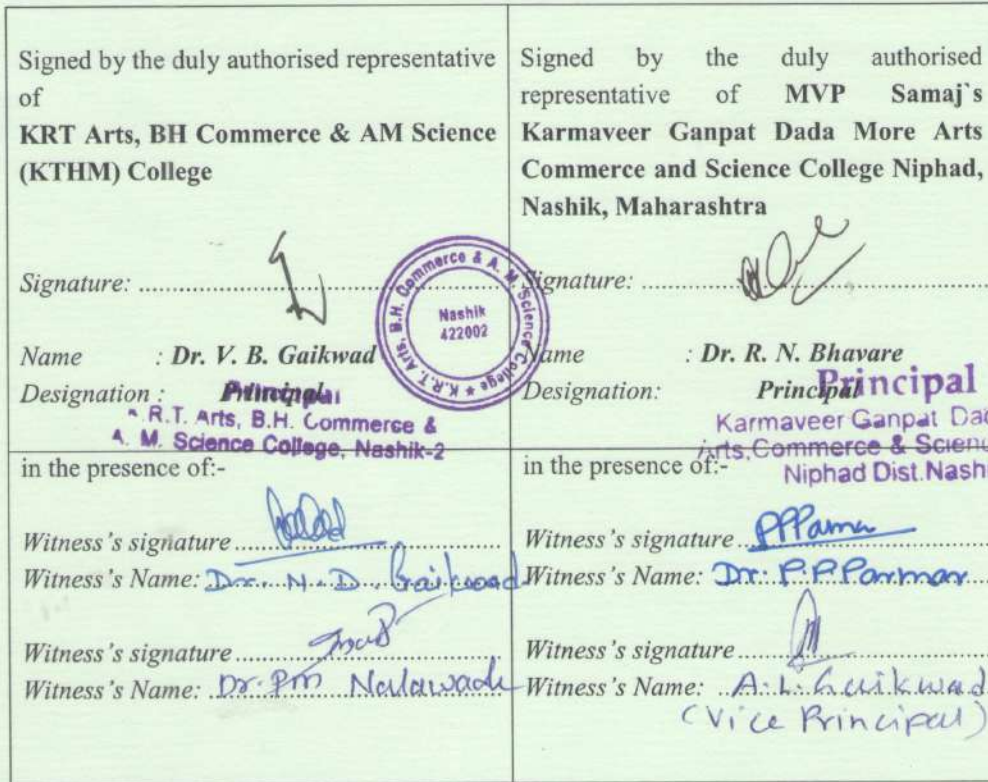 Signed by the duly authorised representative
of
KRT Arts, BH Commerce & AM Science
(KTHM) College
Signature: ................
Name : Dr. V. B. Gaikwad
Designation : Principal
Principal
R.T. Arts, B.H. Commerce &
A. M. Science College, Nashik-2
K.R.T. Arts, B.H. Commerce & A. M. Science College ★
Nashik
422002
in the presence of:-
Witness's signature ................
Witness's Name: Dr. N. D. Gaikwad
Witness's signature ................
Witness's Name: Dr. P.M Nalawade
Signed by the duly authorised
representative of MVP Samaj`s
Karmaveer Ganpat Dada More Arts
Commerce and Science College Niphad,
Nashik, Maharashtra
Signature: ................
Name : Dr. R. N. Bhavare
Designation: Principal
Principal
Karmaveer Ganpat Dad
Arts, Commerce & Scienc
Niphad Dist.Nashi
in the presence of:-
Witness's signature ................
Witness's Name: Dr. P. P Parmar
Witness's signature ................
Witness's Name: A. L. Gaikwad
(Vice Principal)